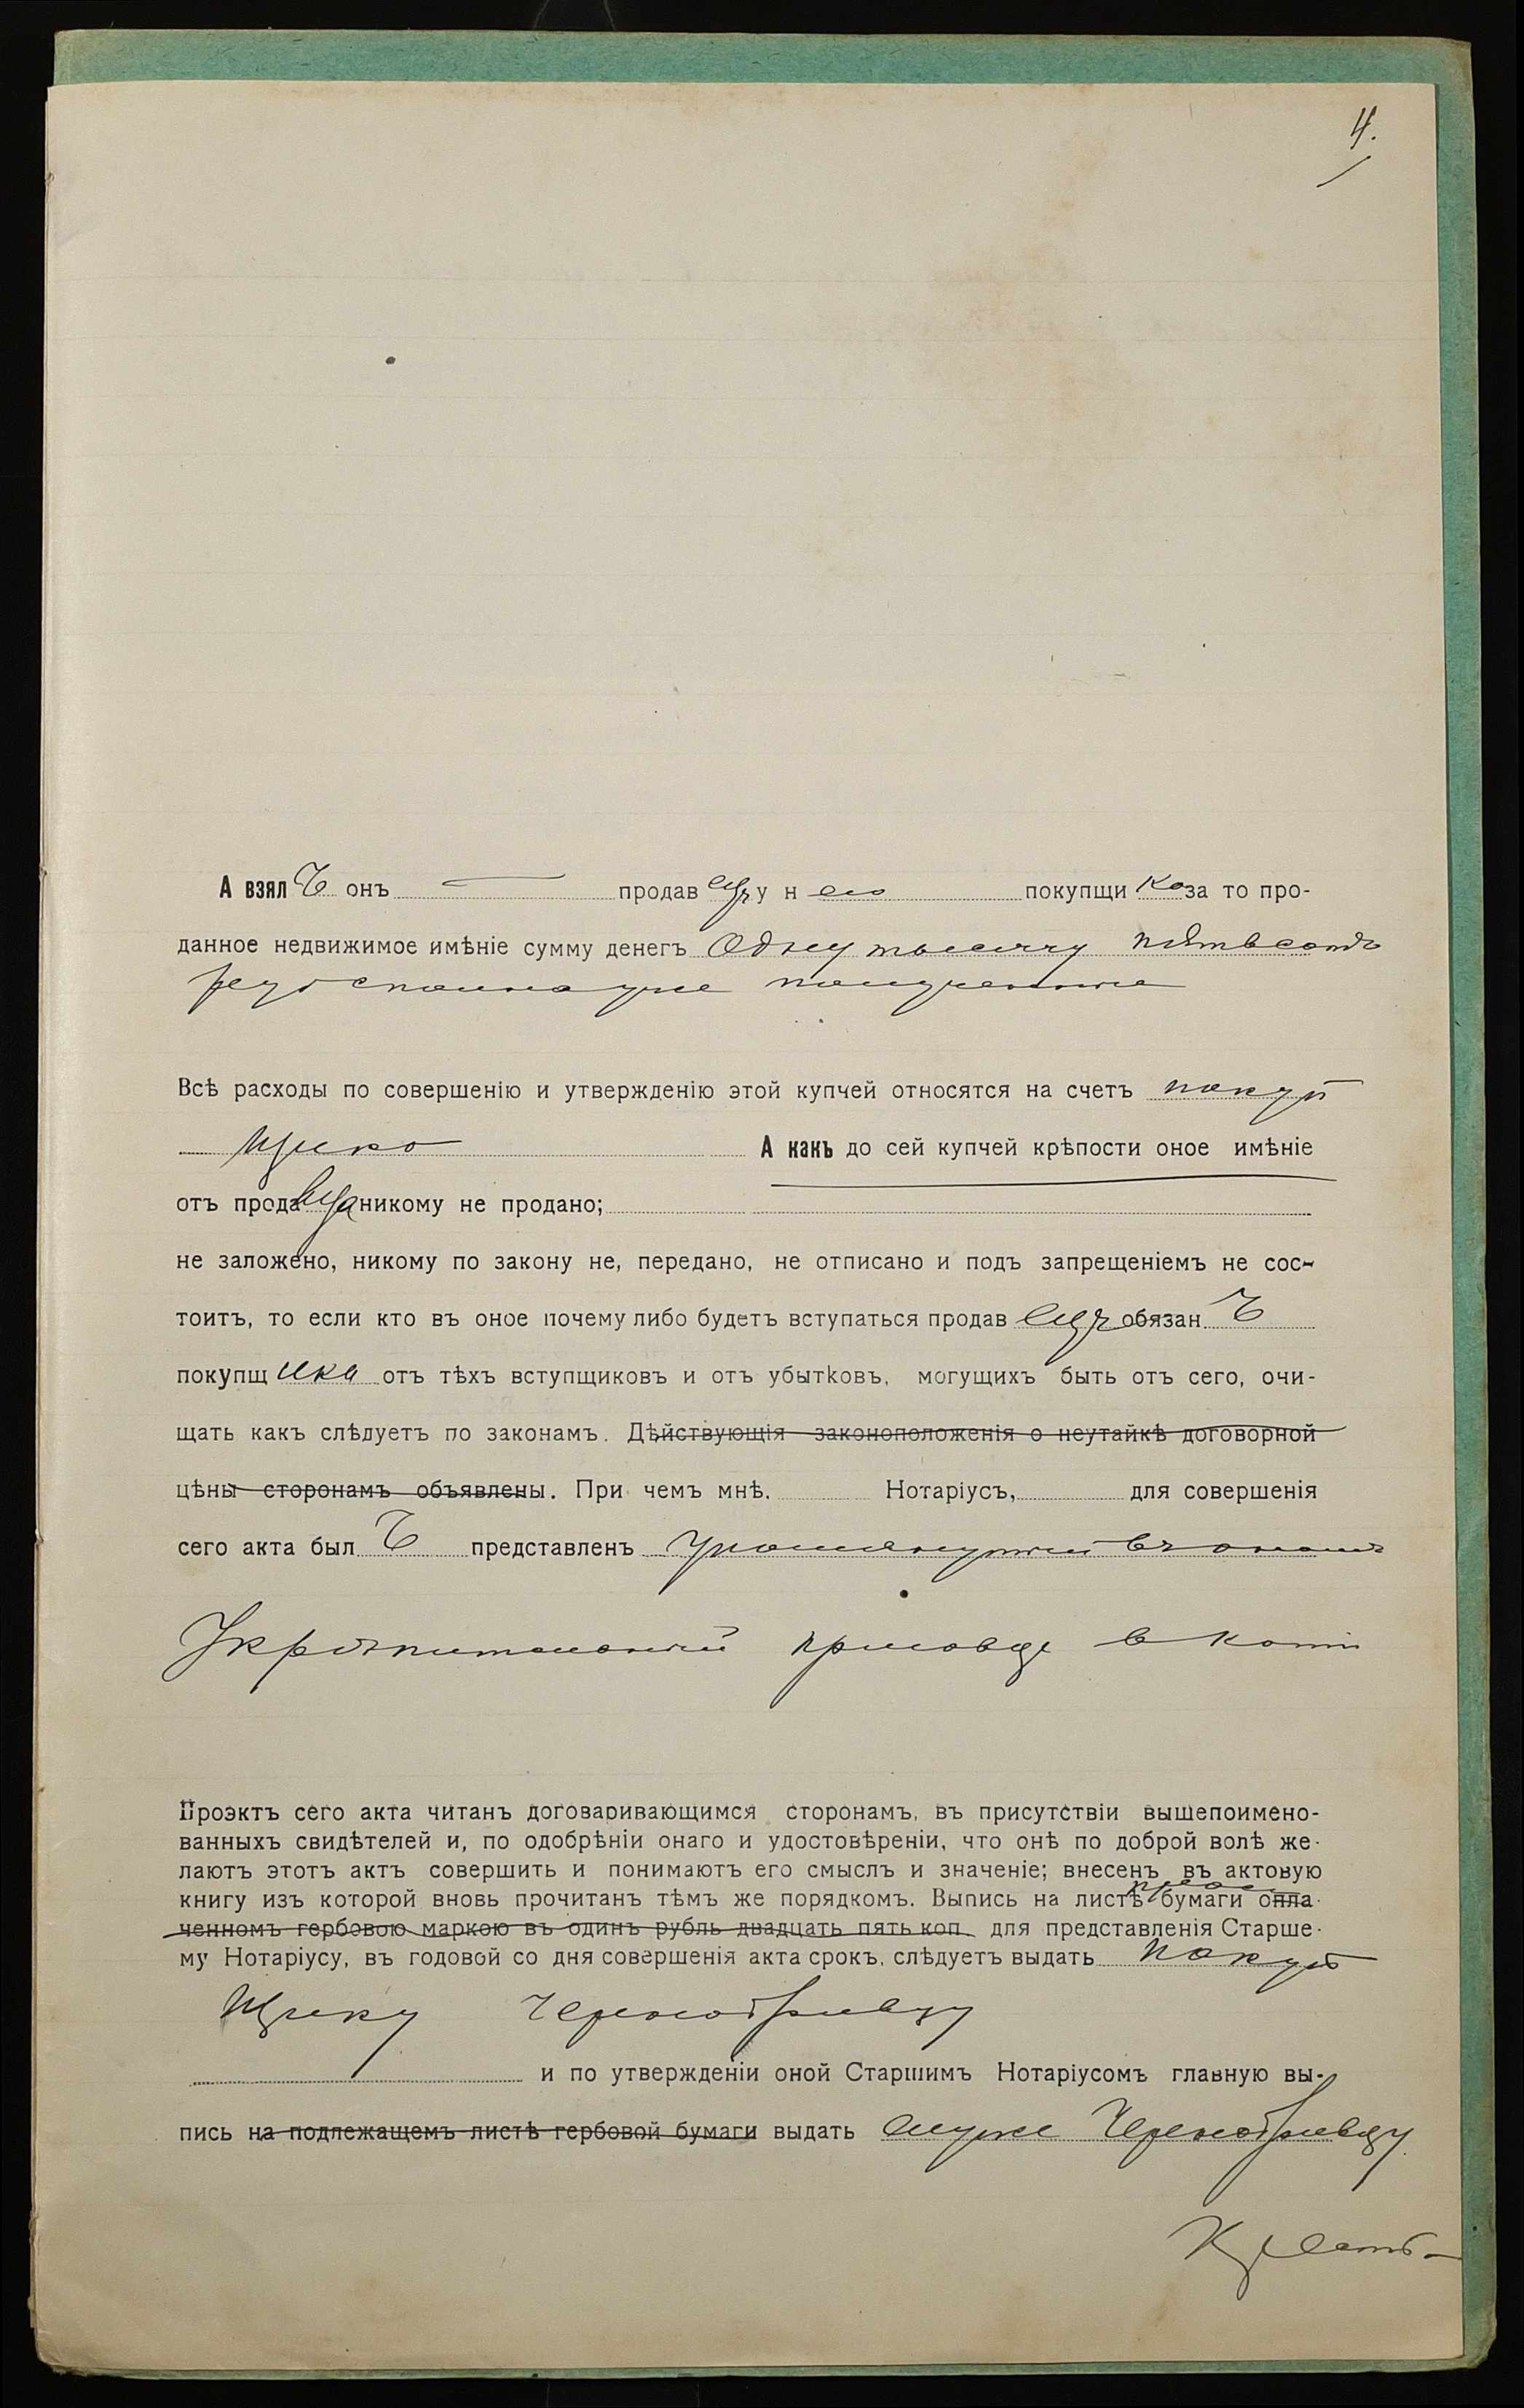 4.
А взялъ онъ — продавецъ у него покупщика за то про-
данное недвижимое имѣніе сумму денегъ Одну тысячу пятьсотъ
руб сполна уже полученные
Всѣ расходы по совершенію и утвержденію этой купчей относятся на счетъ покуп
щика А какъ до сей купчей крѣпости оное имѣніе
отъ продавца никому не продано;
не заложено, никому по закону не, передано, не отписано и подъ запрещеніемъ не сос-
тоитъ, то если кто въ оное почему либо будетъ вступаться продавецъ обязанъ
покупщика отъ тѣхъ вступщиковъ и отъ убытковъ, могущихъ быть отъ сего, очи-
щать какъ слѣдуетъ по законамъ. Дѣйствующія законоположенія о неутайкѣ договорной
цѣны сторонамъ объявлены. При чемъ мнѣ, Нотаріусъ, для совершенія
сего акта былъ представленъ упомянутый въ ономъ
Укрѣпительный в копіи
Проэктъ сего акта читанъ договаривающимся сторонамъ, въ присутствіи вышепоимено-
ванныхъ свидѣтелей и, по одобрѣніи онаго и удостовѣреніи, что онѣ по доброй волѣ же-
лаютъ этотъ актъ совершить и понимаютъ его смыслъ и значеніе; внесенъ въ актовую
книгу изъ которой вновь прочитанъ тѣмъ же порядкомъ. Выпись на листѣ бумаги опла-
ченномъ гербовою маркою въ одинъ рубль двадцать пять коп. для представленія Старше-
му Нотаріусу, въ годовой со дня совершенія акта срокъ, слѣдуетъ выдать покуп
щику Чернобривцу
и по утвержденіи оной Старшимъ Нотаріусомъ главную вы-
пись на подлежащемъ листѣ гербовой бумаги выдать ему же Чернобривцу